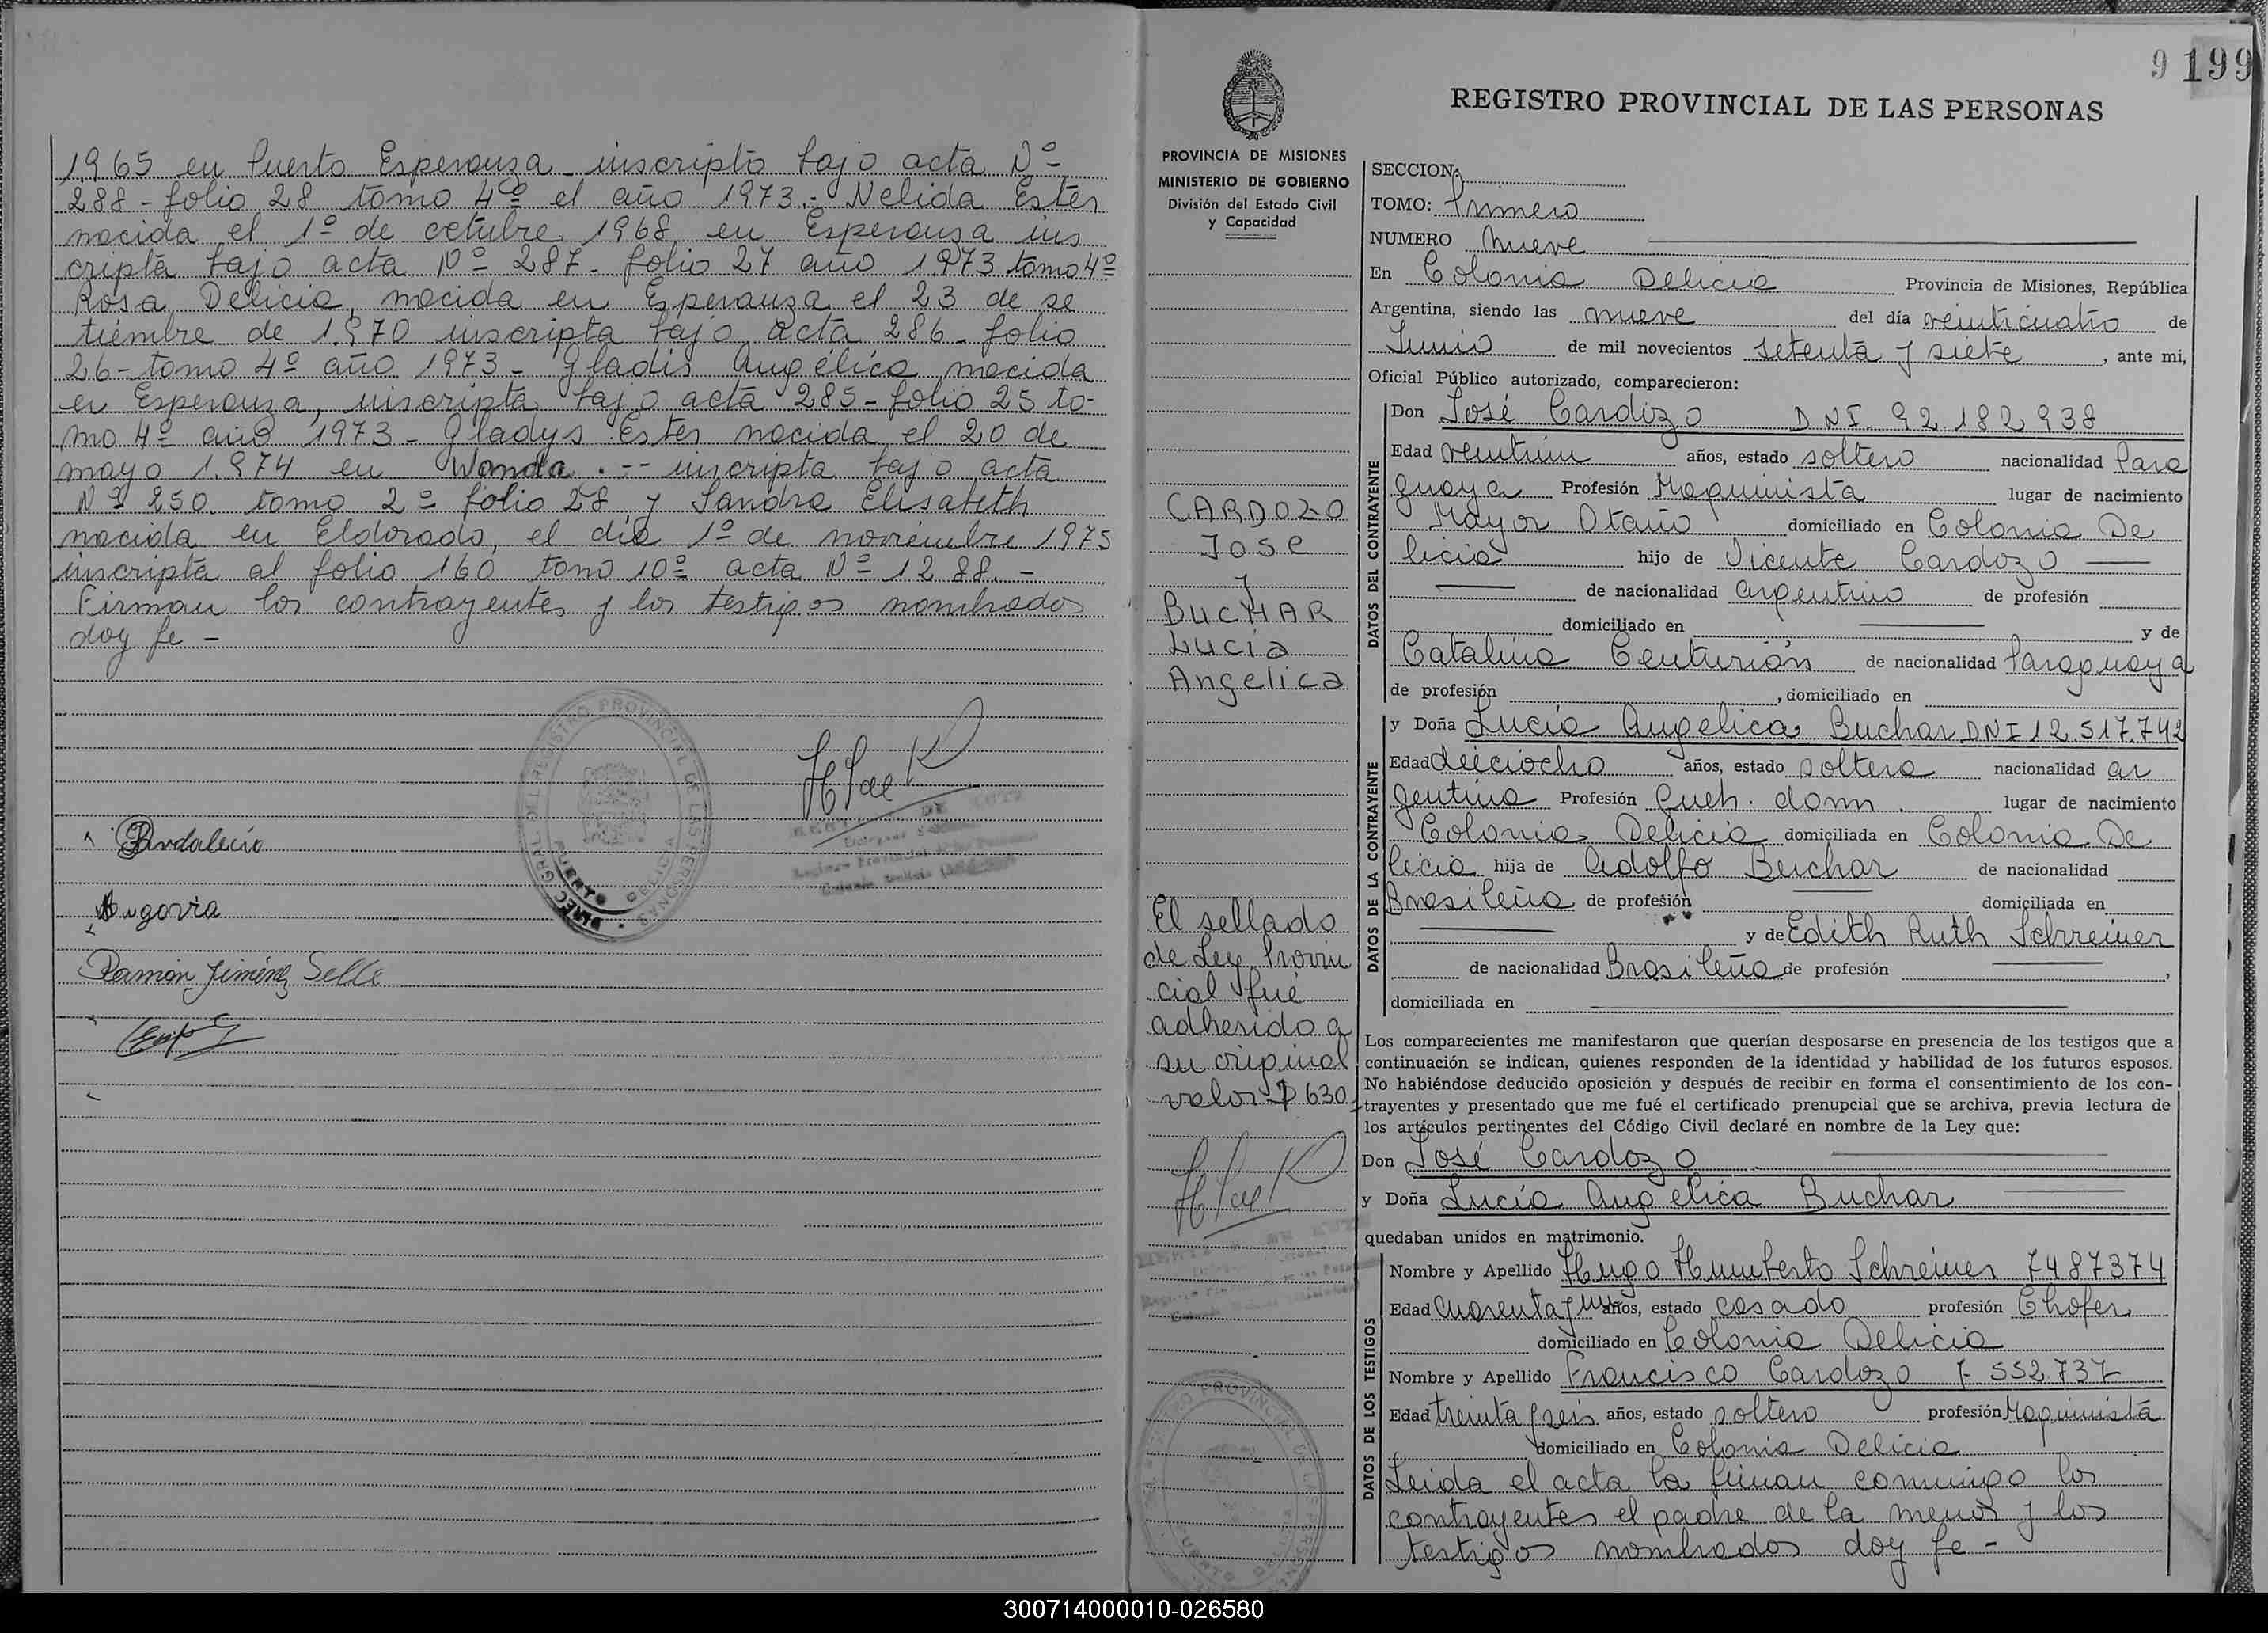 1965 en Puerto Esperanza inscripto bajo acta Nº
288 - folio 28 tomo 4º el año 1973.- Nelida Ester
nacida el 1º de octubre 1968 en Esperanza ins
cripta bajo acta Nº 287- folio 27 año 1973 tomo 4º
Rosa Delicia, nacida en Esperanza el 23 de se
tiembre de 1.970 inscripta bajo acta 286- folio
26- tomo 4º año 1973- Gladis Angélica nacida
en Esperanza, inscripta bajo acta 285- folio 25 to-
mo 4º año 1973- Gladys Ester nacida el 20 de
mayo 1.974 en Wanda .-- inscripta bajo acta
Nº 250. tomo 2º folio 28 y Sandra Elisabeth
nacida en Eldorado, el día 1º de noviembre 1975
inscripta al folio 160 tomo 10º acta Nº 1288.-
Firman los contrayentes y los testigos nombrados
doy fe -
DIREC. GRAL. DEL REGISTRO PROVINCIAL DE LAS PERSONAS
PUERTO DELICIA
Indalecio
Segovia
Ramón Jiménez Selle
9 199
REGISTRO PROVINCIAL DE LAS PERSONAS
PROVINCIA DE MISIONES
MINISTERIO DE GOBIERNO
División del Estado Civil
y Capacidad
CARDOZO
José
y
BUCHAR
Lucía
Angelica
El sellado
de Ley Provin
cial fué
adherido a
su original
valor $ 630
SECCION:
TOMO: Primero
NUMERO Nueve
En Colonia Delicia Provincia de Misiones, República
Argentina, siendo las nueve del día veinticuatro de
Junio de mil novecientos setenta y siete, ante mi,
Oficial Público autorizado, comparecieron:
DATOS DEL CONTRAYENTE
Don José Cardozo DNI. 92.182.938
Edad veintiun años, estado soltero nacionalidad Para
guaya Profesión Maquinista lugar de nacimiento
Mayor Otaño domiciliado en Colonia De
licia hijo de Vicente Cardozo
de nacionalidad argentino de profesión
domiciliado en y de
Catalina Centurión de nacionalidad Paraguaya
de profesión , domiciliado en
DATOS DE LA CONTRAYENTE
y Doña Lucía Angelica Buchar DNI 12.517.742
Edad dieciocho años, estado soltera nacionalidad ar
gentina Profesión Queh. dom. lugar de nacimiento
Colonia Delicia domiciliada en Colonia De
licia hija de Adolfo Buchar de nacionalidad
Brasileña de profesión domiciliada en
y de Edith Ruth Schreiner
de nacionalidad Brasileña de profesión ,
domiciliada en
Los comparecientes me manifestaron que querían desposarse en presencia de los testigos que a
continuación se indican, quienes responden de la identidad y habilidad de los futuros esposos.
No habiéndose deducido oposición y después de recibir en forma el consentimiento de los con-
trayentes y presentado que me fué el certificado prenupcial que se archiva, previa lectura de
los artículos pertinentes del Código Civil declaré en nombre de la Ley que:
Don José Cardozo
y Doña Lucía Angélica Buchar
quedaban unidos en matrimonio.
DATOS DE LOS TESTIGOS
Nombre y Apellido Hugo Humberto Schreiner 7487374
Edad cuarenta y un años, estado casado profesión Chofer
domiciliado en Colonia Delicia
Nombre y Apellido Francisco Cardozo 7.552.737
Edad treinta y seis años, estado soltero profesión Maquinista
domiciliado en Colonia Delicia
Leida el acta la firman conmigo los
contrayentes el padre de la menor y los
testigos nombrados doy fe -
300714000010-026580